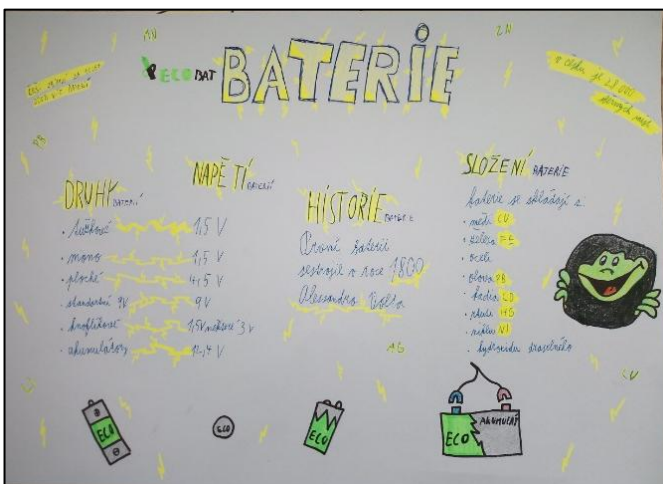 MN
ZN
ECOBAT
BATERIE
v česku je 23 000
sběrných míst
PB
DRUHY BATERIÍ
· tužkové 1,5 V
· mono 1,5 V
· ploché 4,5 V
· standardní 9V 9 V
· knoflíkové 1,5V některé 3 V
· akumulátory 12,4 V
NAPĚTÍ BATERIÍ
HISTORIE BATERIE
První baterii
sestrojil v roce 1800
Alessandro Volta
SLOŽENÍ BATERIE
baterie se skládají z:
· mědi CU
· železa FE
· oceli
· olova PB
· kadmia CD
· rtuti HG
· niklu NI
· hydroxidu draselného
AG
CU
ECO
ECO
ECO
ECO
AKUMULÁT